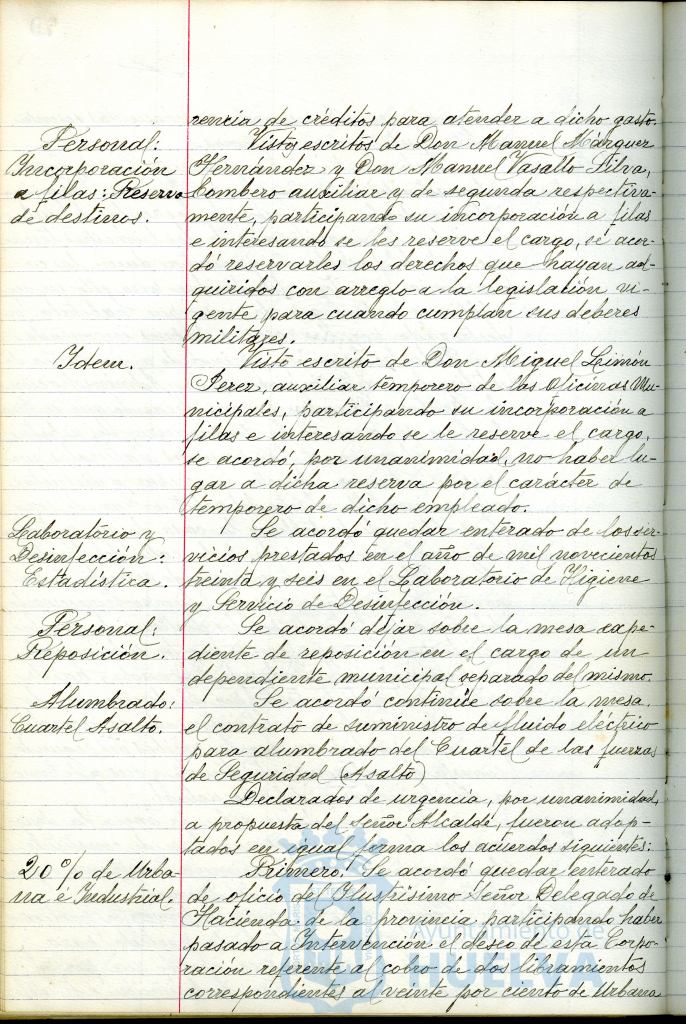 rencia de créditos para atender a dicho gasto.
Personal:
Incorporación
a filas: Reserva
de destinos.
Vistos escritos de Don Manuel Márquez
Hernández y Don Manuel Vasallo Silva,
bombero auxiliar y de segunda respectiva-
mente, participando su incorporación a filas
e interesando se les reserve el cargo, se acor-
dó reservarles los derechos que hayan ad-
quiridos con arreglo a la legislación vi-
gente, para cuando cumplan sus deberes
militares.
Idem.
Visto escrito de Don Miguel Limón
Perez, auxiliar temporero de las Oficinas Mu-
nicipales, participando su incorporación a
filas e interesando se le reserve el cargo,
se acordó, por unanimidad, no haber lu-
gar a dicha reserva por el carácter de
temporero de dicho empleado.
Laboratorio y
Desinfección:
Estadística.
Se acordó quedar enterado de los ser-
vicios prestados en el año de mil novecientos
treinta y seis en el Laboratorio de Higiene
y Servicio de Desinfección.
Personal:
Reposición.
Se acordó dejar sobre la mesa expe-
diente de reposición en el cargo de un
dependiente municipal separado del mismo.
Alumbrado:
Cuartel Asalto.
Se acordó continúe sobre la mesa,
el contrato de suministro de fluido eléctrico
para alumbrado del Cuartel de las fuerzas
de Seguridad (Asalto)
Declarados de urgencia, por unanimidad,
a propuesta del Señor Alcalde, fueron adop-
tados en igual forma los acuerdos siguientes:
20% de Urba-
na é Industrial.
Primero: Se acordó quedar enterado
de oficio del Ilustrísimo Señor Delegado de
Hacienda de la provincia participando haber
pasado a Intervención el deseo de esta Corpo-
ración referente al cobro de dos libramientos
correspondientes al veinte por ciento de Urbana
Ayuntamiento de
HUELVA